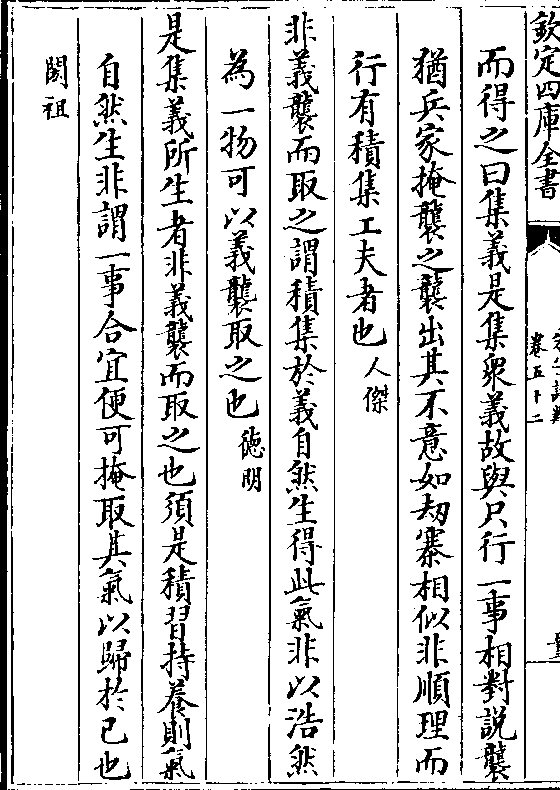 欽定四庫全書
卷五十二
而得之曰集義是集衆義故與只行一事相對說襲
猶兵家掩襲之襲出其不意如刼寨相似非順理而
行有積集工夫者也人傑
非義襲而取之謂積集於義自然生得此氣非以浩然
為一物可以義襲取之也徳明
是集義所生者非義襲而取之也須是積習持養則氣
自然生非謂一事合宜便可掩取其氣以歸於己也
閎祖